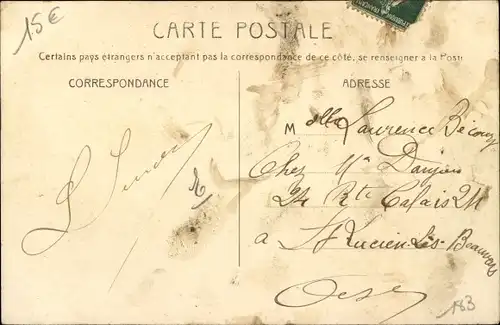 15€
CARTE POSTALE
Certains pays étrangers n'acceptant pas la correspondance de ce côté, se renseigner à la Post
CORRESPONDANCE
ADRESSE
Melle Laurence
Chez Mr
24 Rte Calais 24
a St Lucien-Lès-Beauvais
Oise
183